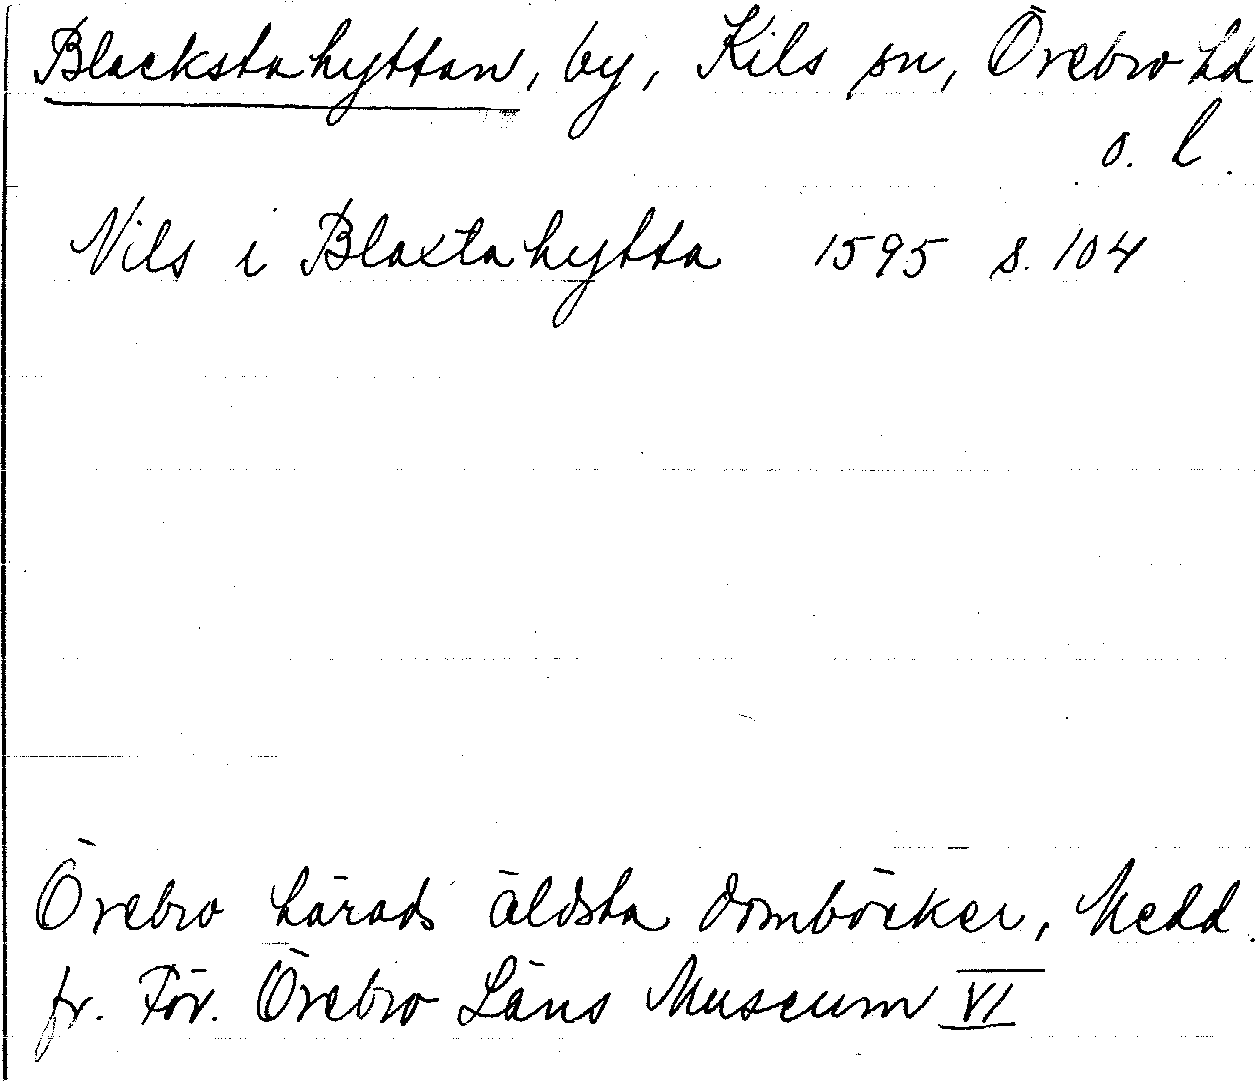 Blackstahyttan, by, Kils sn, Örebro hd
o. l.
Nils i Blaxtahytta 1595 s. 104
Örebro härads äldsta domböcker, Medd.
fr. För. Örebro Läns Museum VI